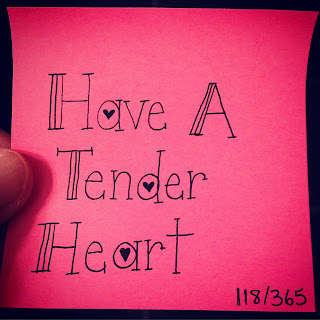 Have A
Tender
Heart
118/365